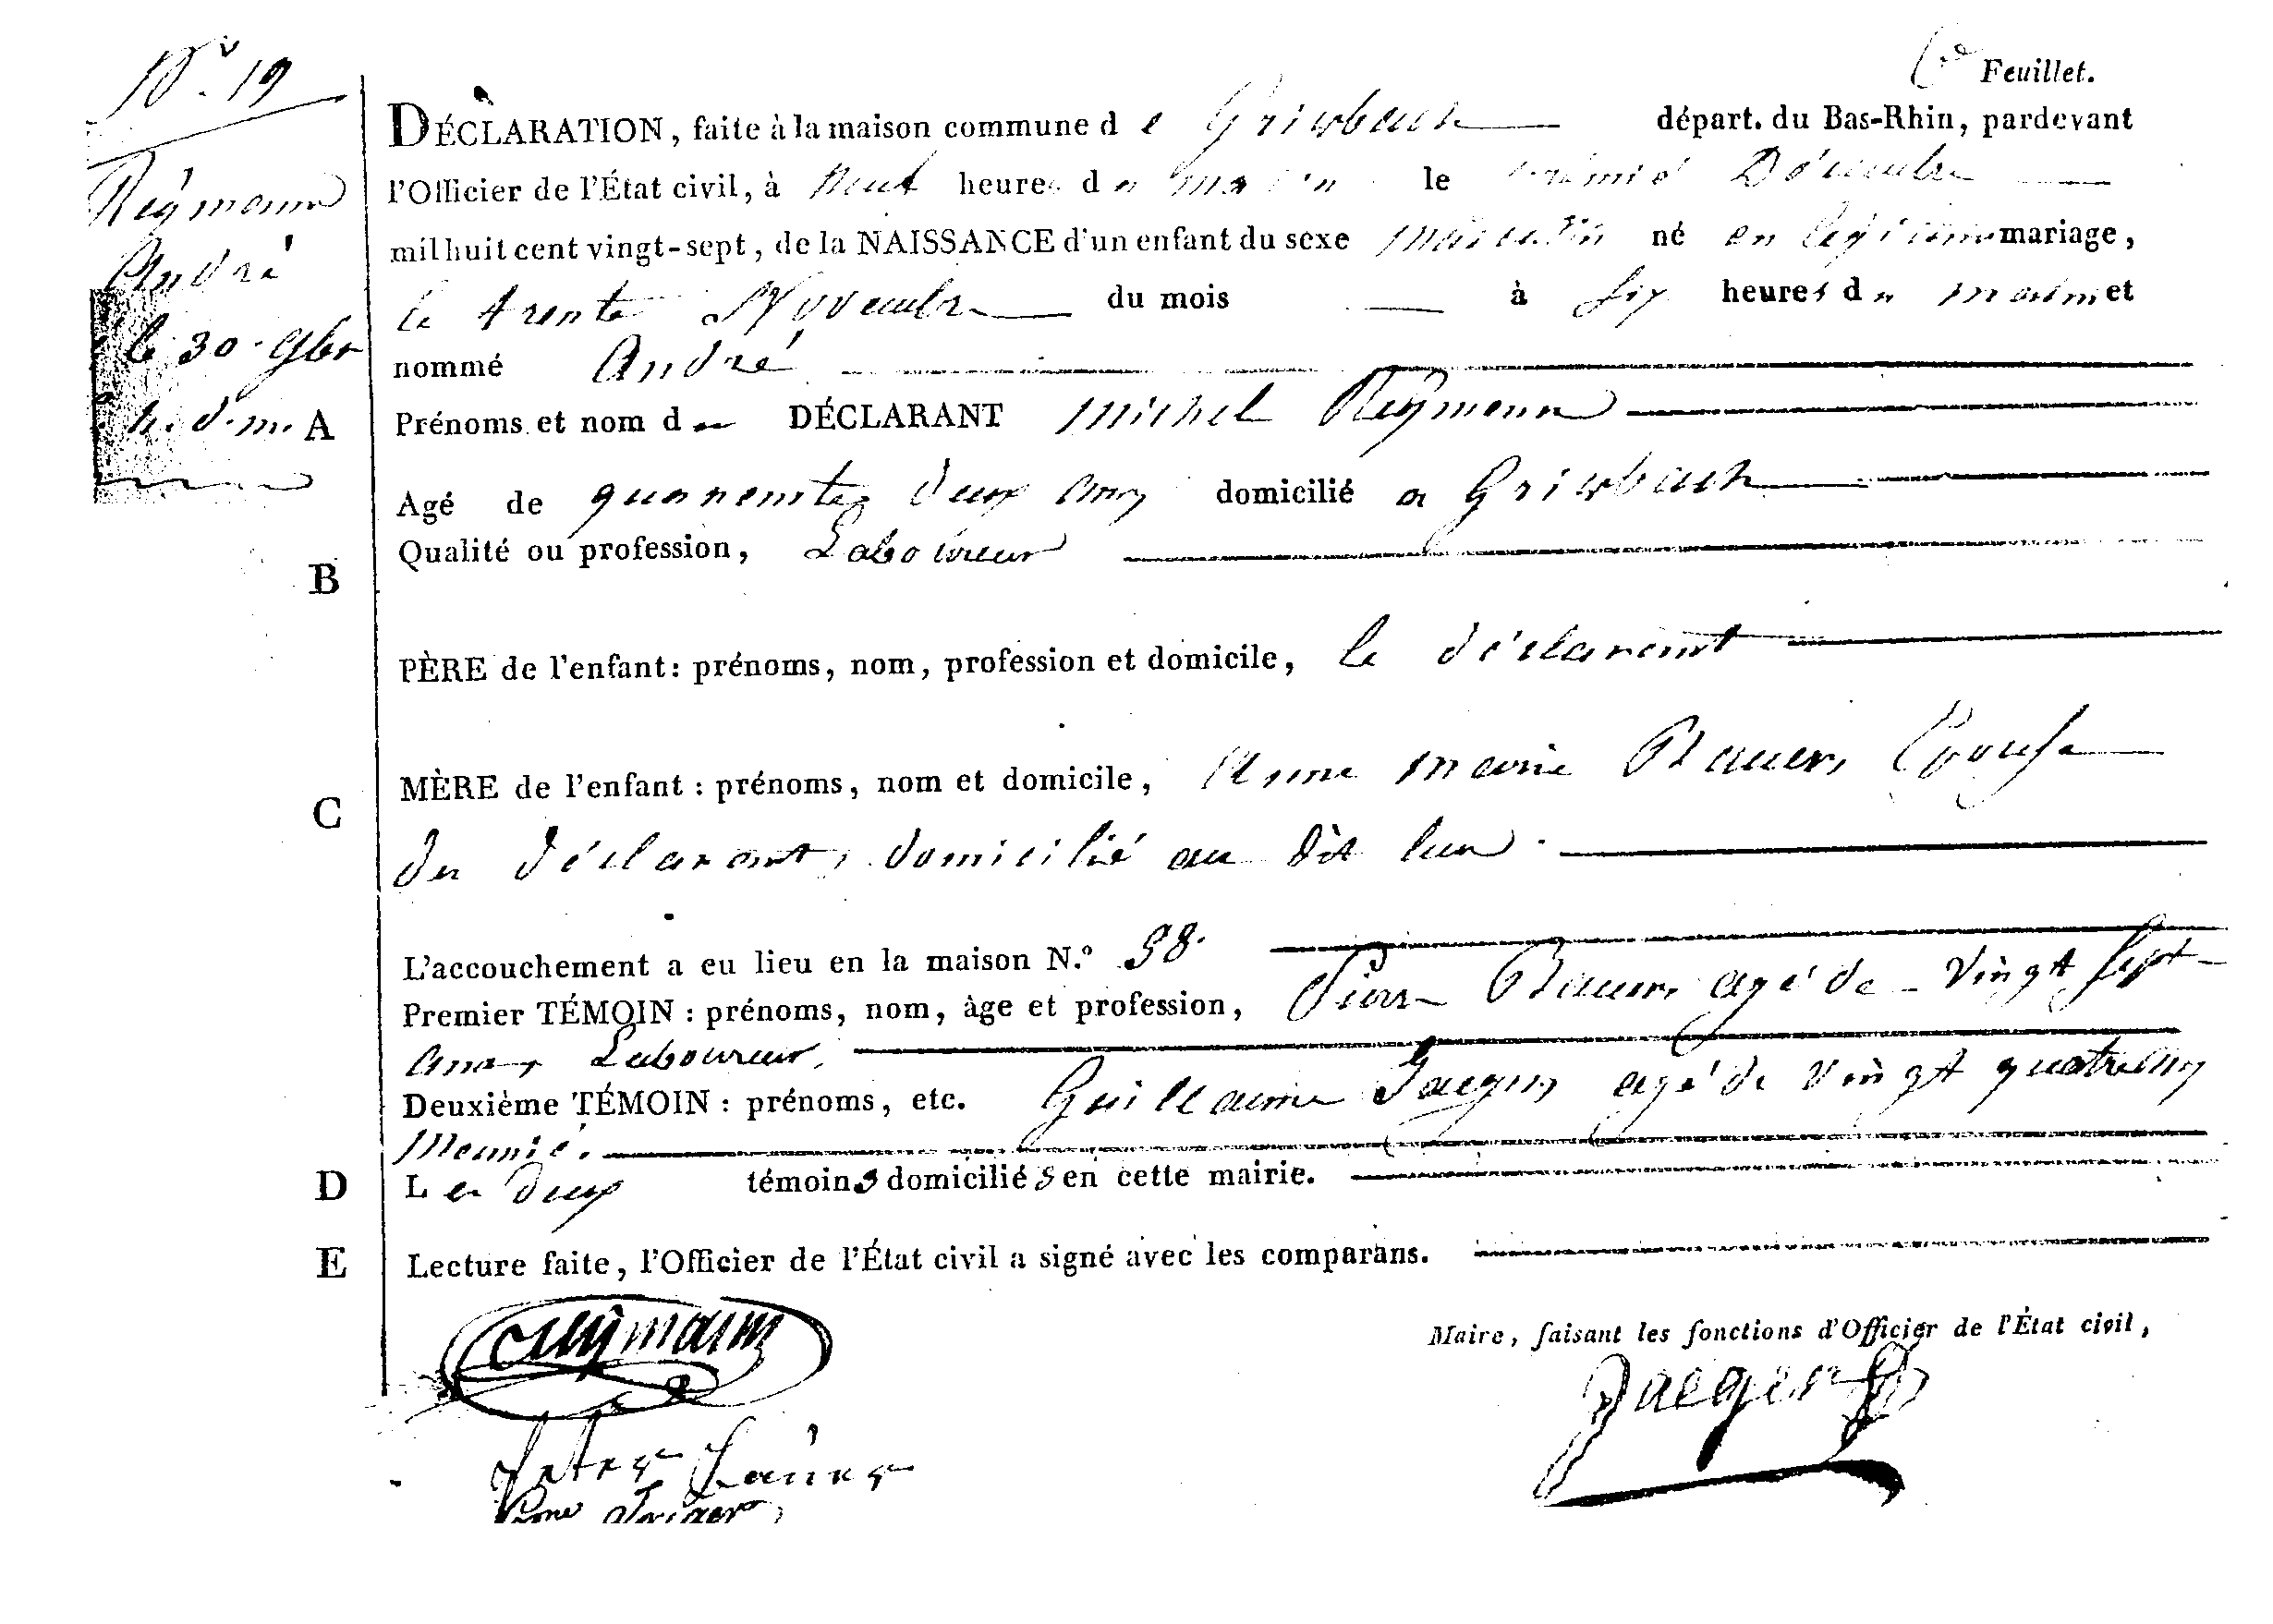 N.º 19
Reÿmann
André
le 30. 9br
h. d. m.
6e Feuillet.
DÉCLARATION, faite à la maison commune de Griesbach départ. du Bas-Rhin, pardevant
l'Officier de l'État civil, à Neuf heures du matin le premie Décembre
mil huit cent vingt-sept, de la NAISSANCE d'un enfant du sexe Masculin né en légitime mariage,
le trente Novembre du mois à six heures du matin et
nommé André
A Prénoms et nom du DÉCLARANT Michel Reÿmann
Agé de quarente deux ans domicilié a Griesbach
Qualité ou profession, Laboureur
B
PÈRE de l'enfant: prénoms, nom, profession et domicile, le déclarent
MÈRE de l'enfant : prénoms, nom et domicile, Anne Marie Bauer, Epouse
C
du déclarant, domicilié au dit lieu.
L'accouchement a eu lieu en la maison N.º 38.
Premier TÉMOIN : prénoms, nom, àge et profession, Pierre Bauer, agé de vingt sept
ans, Laboureur.
Deuxième TÉMOIN : prénoms, etc. Guillaume Jaeger, agé de vingt quatre ans
Meunié.
D Les deux témoins domiciliés en cette mairie.
E Lecture faite, l'Officier de l'État civil a signé avec les comparans.
Reÿmann
Maire, faisant les fonctions d'Officier de l'État civil,
Jaeger
Peter Bauer
Jaeger